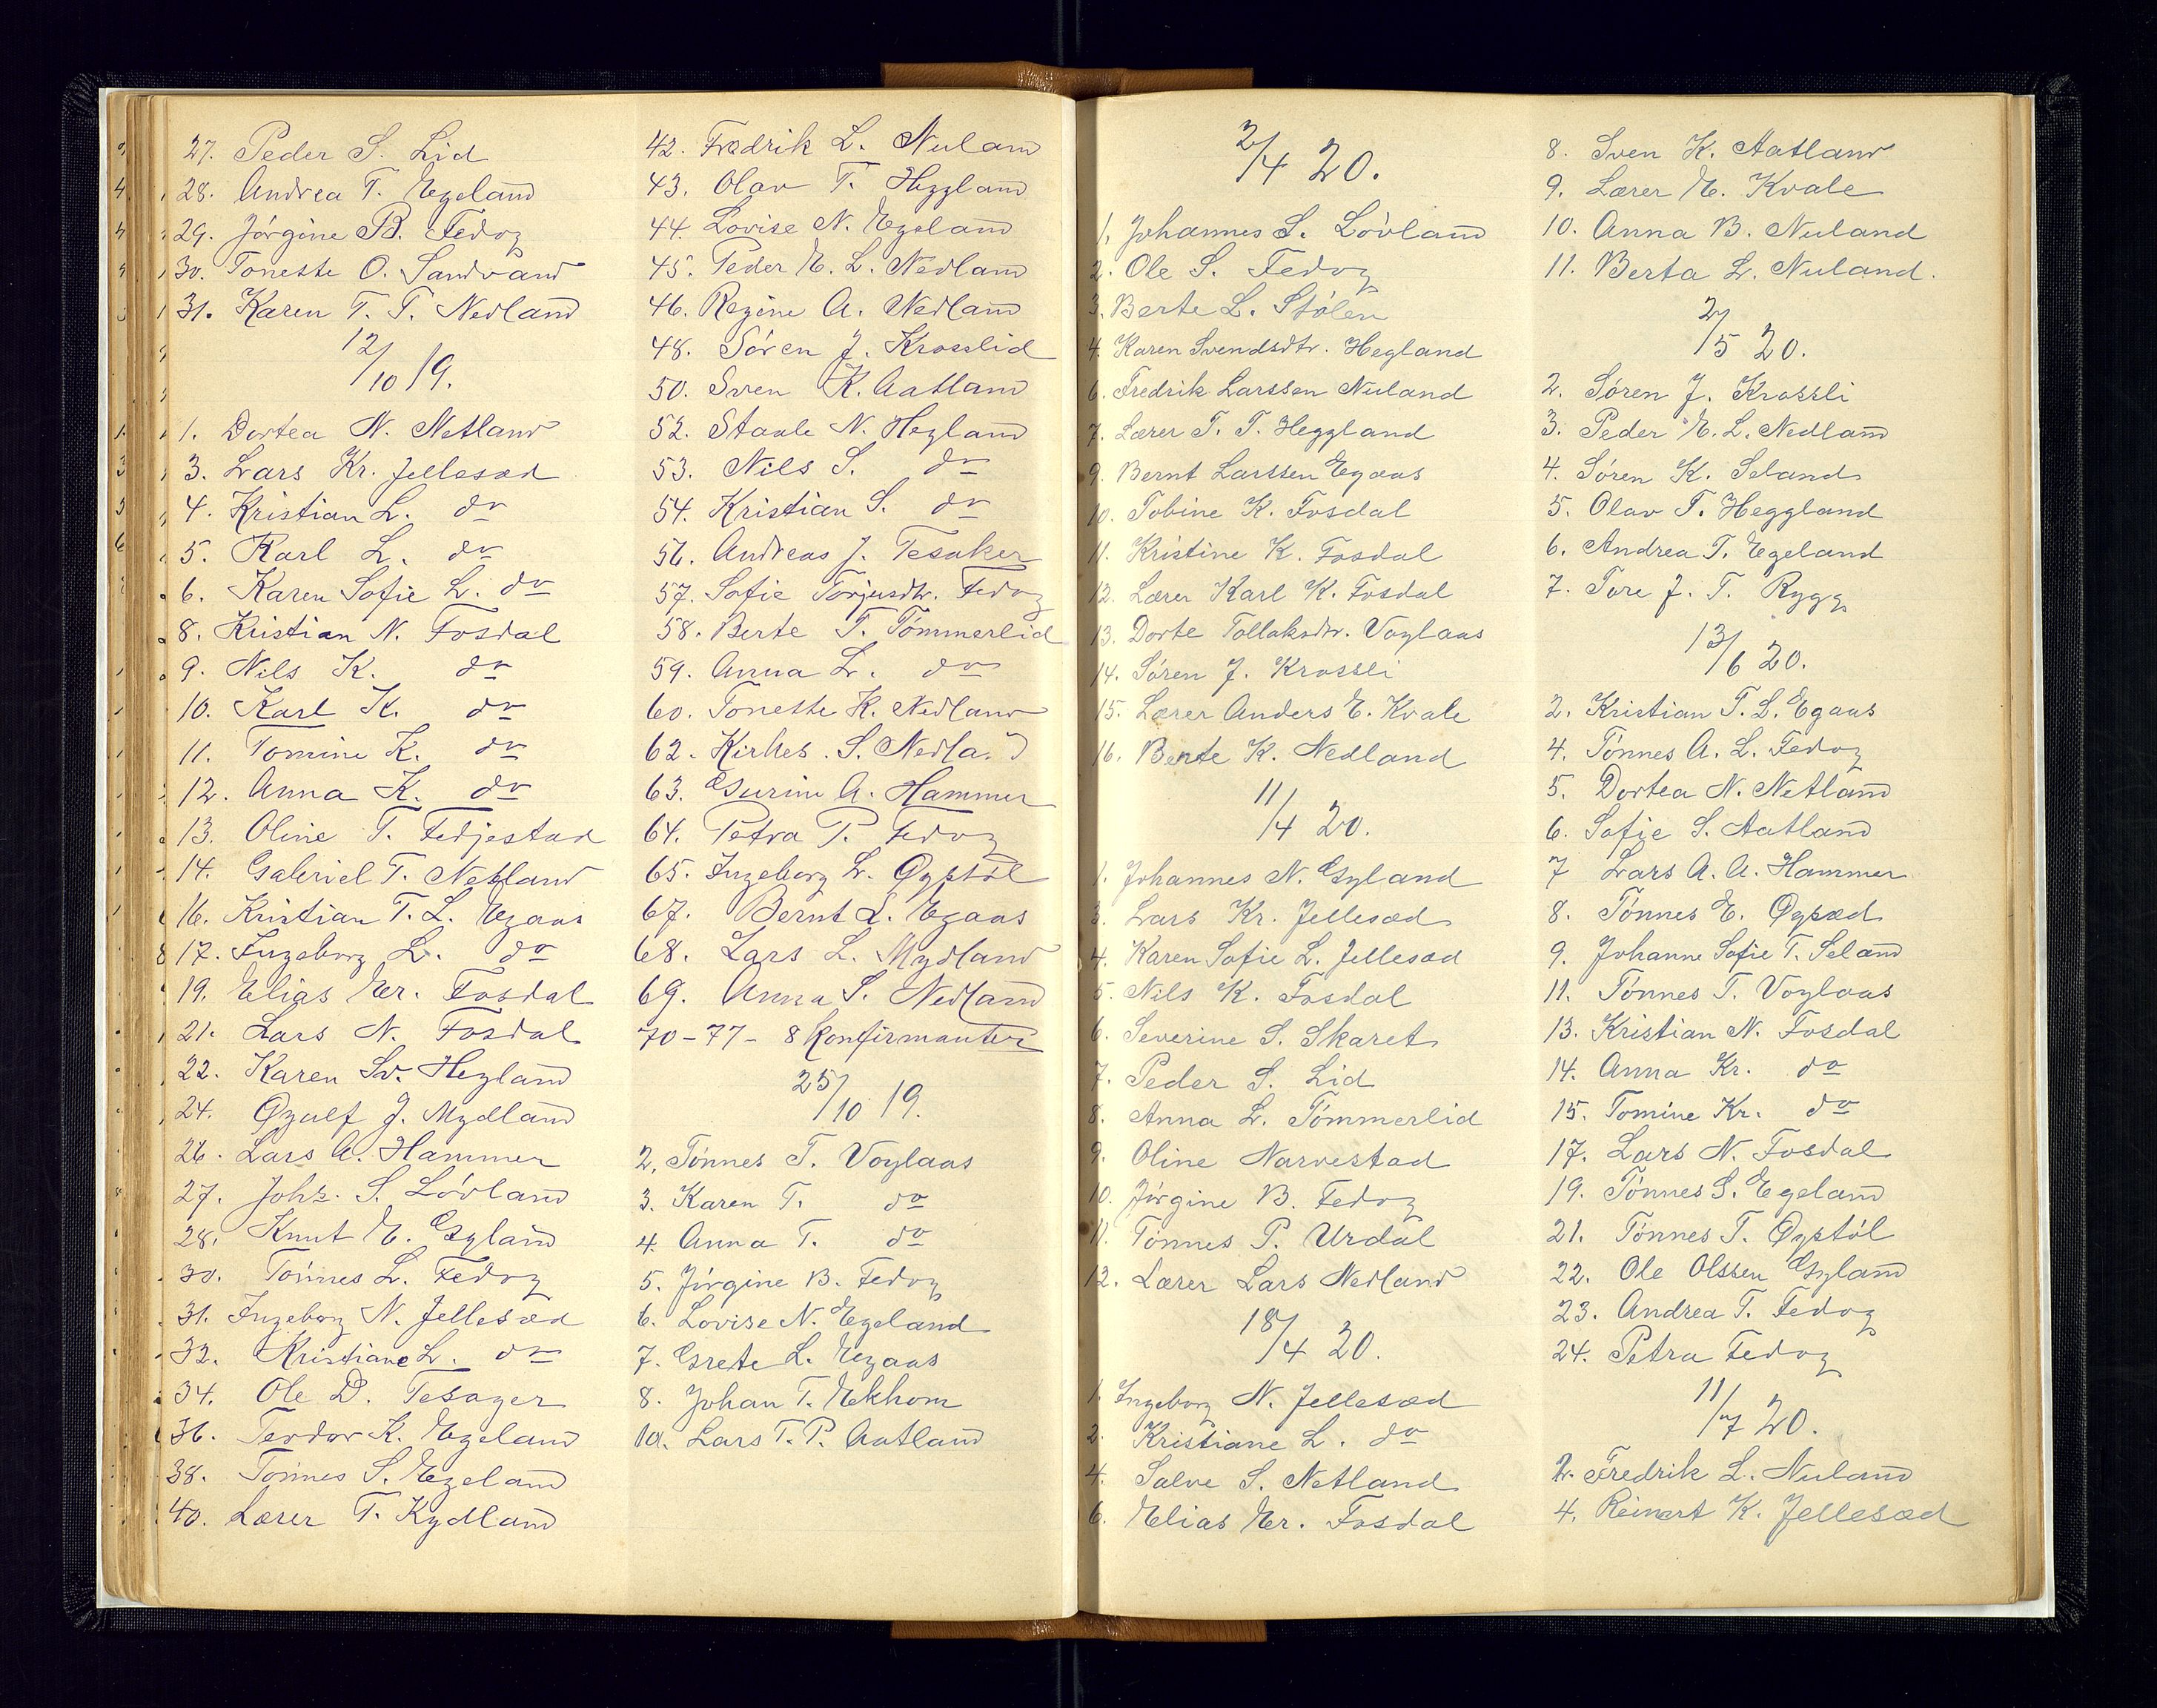 27. Peder S. Lid
28. Andrea T. Egeland
29. Jórgine B. Fedog
30. Toneste O. Sandvand
31. Karen T. T. Nedland
12/10 19.
1. Dortea N. Netland
3. Lars Kr. Jellesæd
4. Kristian L. do
5. Karl L. do
6. Karen Sofie L. do
8. Kristian N. Fosdal
9. Nils K. do
10. Karl K. do
11. Tomine K. do
12. Anna K. do
13. Oline T. Fedjestad
14. Gabriel T. Netland
16. Kristian T. L. Egaas
17. Ingeborg L. do
19. Elias Er. Fosdal
21. Lars N. Fosdal
22. Karen Sv. Hegland
24. Øgulf J. Mydland
26. Lars A. Hammer
27. Johs. S. Lóvland
28. Knut E. Gyland
30. Tónnes L. Fedog
31. Ingeborg N. Jellesæd
32. Kristiane L. do
34. Ole D. Tesager
36. Teodor K. Egeland
38. Tónnes S. Egeland
40. Lærer T. Kydland
42. Fredrik L. Nuland
43. Olav T. Heggland
44. Lovise N. Egeland
45. Peder E. L. Nedland
46. Regine A. Nedland
48. Sóren J. Krosslid
50. Sven K. Aatland
52. Staale N. Hegland
53. Nils S. do
54. Kristian S. do
56. Andreas J. Tesaker
57. Sofie Torjusdtr. Fedog
58. Berte T. Tómmerlid
59. Anna L. do
60. Tonette K. Nedland
62. Kirkes. S. Nedla.d
63. Gurine A. Hammer
64. Petra P. Fedog
65. Ingeborg L. Øystól
67. Bernt L. Egaas
68. Lars L. Mydland
69. Anna S. Nedland
70-77- 8 konfirmanter
25/10 19.
2. Tónnes T. Voglaas
3. Karen T. do
4. Anna T. do
5. Jórgine B. Fedog
6. Lovise N. Egeland
7. Grete L. Egaas
8. Johan T. Ekhom
10. Lars T. P. Aatland
2/4 20.
1. Johannes S. Lóvland
2. Ole S. Fedog
3. Berte L. Stólen
4. Karen Svendsdtr. Hegland
6. Fredrik Larssen Nuland
7. Lærer T. T. Heggland
9. Bernt Larssen Egaas
10. Tobine K. Fosdal
11. Kristine K. Fosdal
12. Lærer Karl K. Fosdal
13. Dorte Tollaksdtr. Voglaas
14. Sóren J. Krossli
15. Lærer Anders E. Kvale
16. Bente K. Nedland
11/4 20.
1. Johannes N. Gyland
3. Lars Kr. Jellesæd
4. Karen Sofie L. Jellesæd
5. Nils K. Fosdal
6. Severine S. Skaret
7. Peder S. Lid
8. Anna L. Tómmerlid
9. Oline Narvestad
10. Jórgine B. Fedog
11. Tónnes P. Urdal
12. Lærer Lars Nedland
18/4 20.
1. Ingeborg N. Jellesæd
2. Kristiane L. do
4. Salve S. Netland
6. Elias Er. Fosdal
8. Sven K. Aatland
9. Lærer E. Kvale
10. Anna B. Nuland
11. Berta L. Nuland.
2/5 20.
2. Sóren J. Krossli
3. Peder E. L. Nedland
4. Sóren K. Seland
5. Olav T. Heggland
6. Andrea T. Egeland
7. Tore J. T. Rygg
13/6 20.
2. Kristian T. L. Egaas
4. Tónnes A. L. Fedog
5. Dortea N. Netland
6. Sofie S. Aatland
7 Lars A. A. Hammer
8. Tónnes E. Øysæd
9. Johanne Sofie T. Seland
11. Tónnes T. Voglaas
13. Kristian N. Fosdal
14. Anna Kr. do
15. Tomine Kr. do
17. Lars N. Fosdal
19. Tónnes S. Egeland
21. Tónnes T. Øystól
22. Ole Olssen Gyland
23. Andrea T. Fedog
24. Petra Fedog
11/7 20.
2. Fredrik L. Nuland
4. Reinert K. Jellesæd